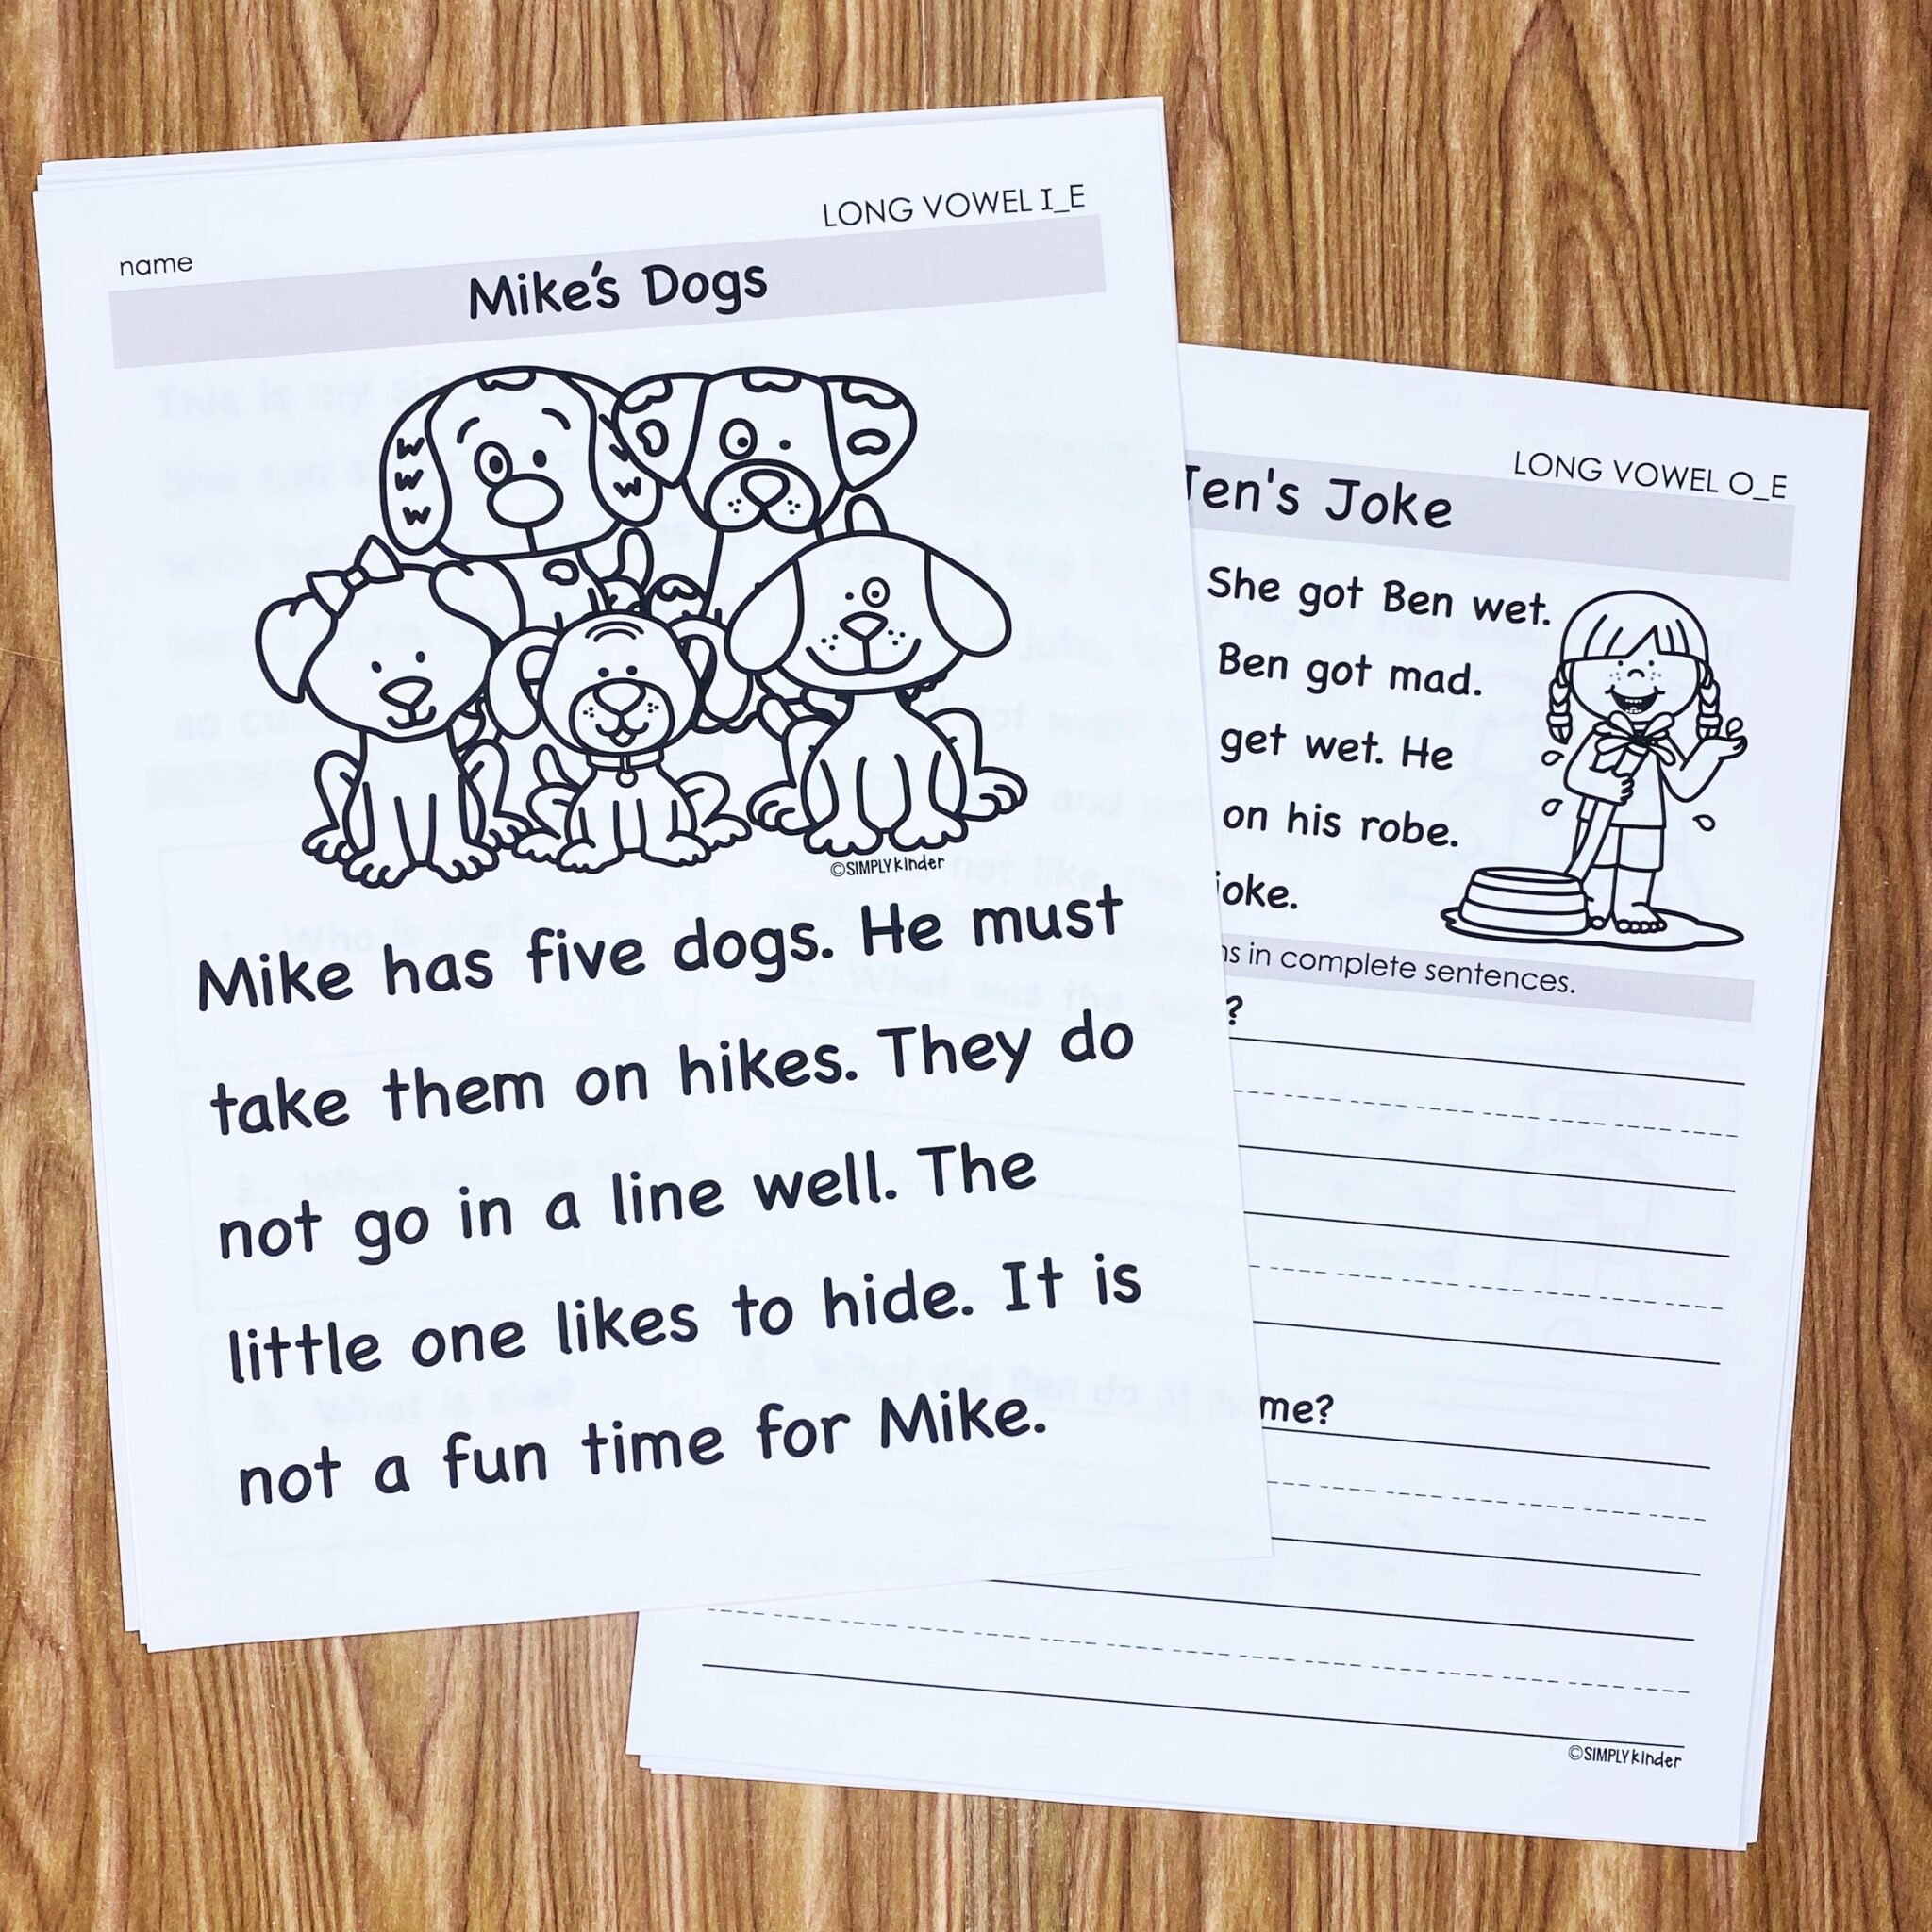 LONG VOWEL I_E
name
Mike's Dogs
©SIMPLYkinder
Mike has five dogs. He must
take them on hikes. They do
not go in a line well. The
little one likes to hide. It is
not a fun time for Mike.
LONG VOWEL O_E
Jen's Joke
She got Ben wet.
Ben got mad.
get wet. He
on his robe.
joke.
in complete sentences.
?
me?
©SIMPLYkinder